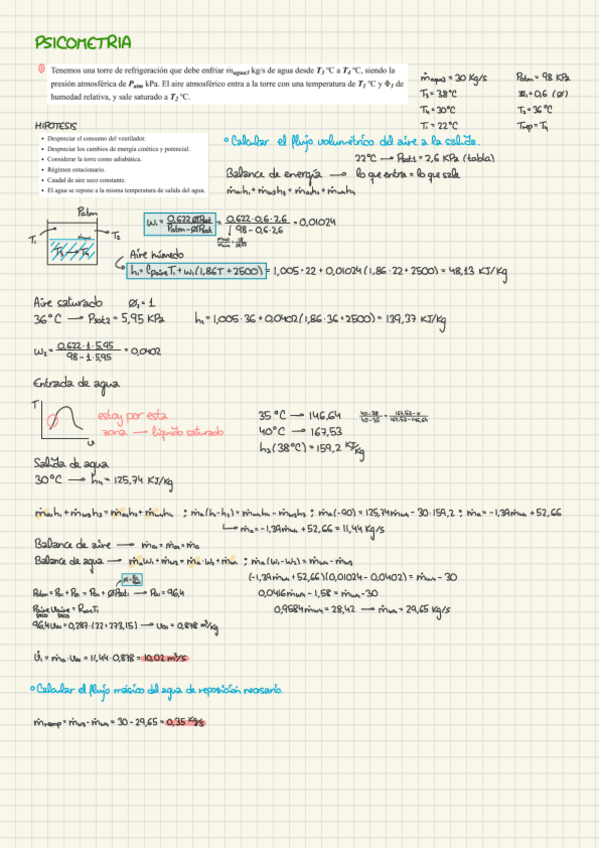 PSICOMETRIA
① Tenemos una torre de refrigeración que debe enfriar ṁagua3 kg/s de agua desde T3 ºC a T4 ºC, siendo la
presión atmosférica de Patm kPa. El aire atmosférico entra a la torre con una temperatura de T1 ºC y Φ1 de
humedad relativa, y sale saturado a T2 ºC.
ṁagua3 = 30 Kg/s
T3 = 38°C
T4 = 30°C
T1 = 22°C
Patm = 98 KPa
Φ1 = 0,6 (Ø)
T2 = 36°C
Trep = T4
HIPOTESIS
• Despreciar el consumo del ventilador.
• Despreciar los cambios de energía cinética y potencial.
• Considerar la torre como adiabática.
• Régimen estacionario.
• Caudal de aire seco constante.
• El agua se repone a la misma temperatura de salida del agua.
° Calcular el flujo volumétrico del aire a la salida.
22°C → Psat1 = 2,6 KPa (tabla)
Balance de energía → lo que entra = lo que sale
ṁa1h1 + ṁw3h3 = ṁa2h2 + ṁw4h4
Patm
T1
T2
T3 → T4
W1 = 0,622·ØPsat / Patm - ØPsat = 0,622·0,6·2,6 / 98 - 0,6·2,6 = 0,01024
Aire húmedo
h1 = CpaireT1 + W1(1,86T + 2500) = 1,005·22 + 0,01024(1,86·22 + 2500) = 48,13 KJ/Kg
Aire saturado Ø2 = 1
36°C → Psat2 = 5,95 KPa h2 = 1,005·36 + 0,0402(1,86·36 + 2500) = 139,37 KJ/Kg
W2 = 0,622·1·5,95 / 98 - 1·5,95 = 0,0402
Entrada de agua
T
estoy por esta
zona → líquido saturado
35°C → 146,64
40°C → 167,53
h3(38°C) = 159,2 KJ/Kg
Salida de agua
30°C → h4 = 125,74 KJ/Kg
ṁa1h1 + ṁw3h3 = ṁa2h2 + ṁw4h4 ; ṁa(h1-h2) = ṁw4h4 - ṁw3h3 ; ṁa(-90) = 125,74ṁw4 - 30·159,2 ; ṁa = -1,39ṁw4 + 52,66
→ ṁa = -1,39ṁw4 + 52,66 = 11,44 Kg/s
Balance de aire → ṁa1 = ṁa2 = ṁa
Balance de agua → ṁaW1 + ṁw3 = ṁa·W2 + ṁw4 ; ṁa(W1-W2) = ṁw4 - ṁw3
(-1,39ṁw4 + 52,66)(0,01024 - 0,0402) = ṁw4 - 30
Patm = Pa1 + Pv1 = Pa1 + ØPsat1 → Pa1 = 96,4
0,0416ṁw4 - 1,58 = ṁw4 - 30
0,9584ṁw4 = 28,42 → ṁw4 = 29,65 Kg/s
96,4Va1 = 0,287·(22 + 273,15) → Va1 = 0,878 m³/kg
V̇1 = ṁa·Va1 = 11,44·0,878 = 10,02 m³/s
° Calcular el flujo másico del agua de reposición necesario.
ṁremp = ṁw3 - ṁw4 = 30 - 29,65 = 0,35 Kg/s